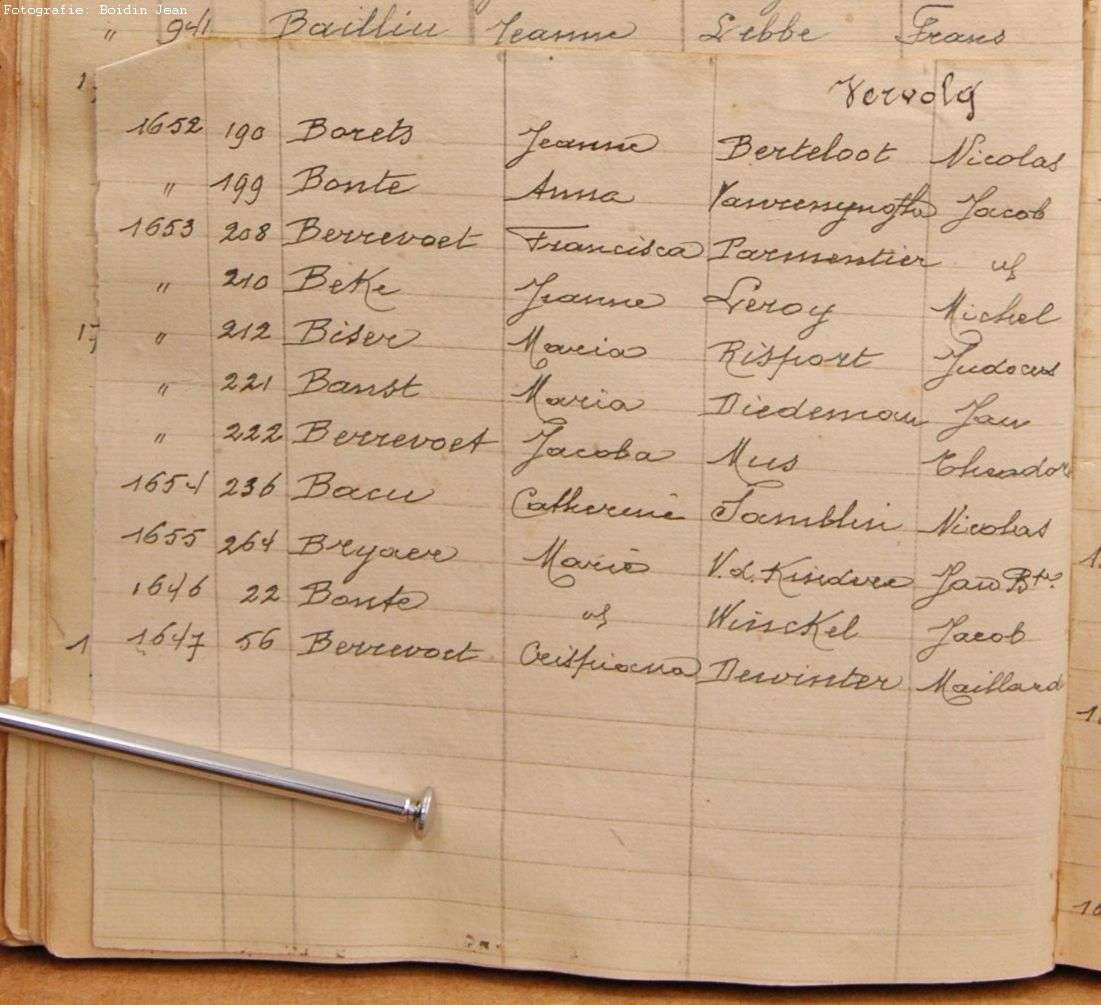 Fotografie: Boidin Jean
" 941 Bailliu Jeanne Lebbe Frans
Vervolg
1652 190 Borets Jeanne Berteloot Nicolas
" 199 Bonte Anna Jacob
1653 208 Berrevoet Francisca Parmentier
" 210 Beke Jeanne Leroy Michel
" 212 Biser Maria Risport Judocus
" 221 Banst Maria Diedeman Jan
" 222 Berrevoet Jacoba Mus Theodor
1654 236 Bacu Catherine Tamblin Nicolas
1655 264 Bryaer Marie V.d. Kindere Jan Bte
1646 22 Bonte Winckel Jacob
1647 56 Berrevoet Crispiana Dewinter Maillard